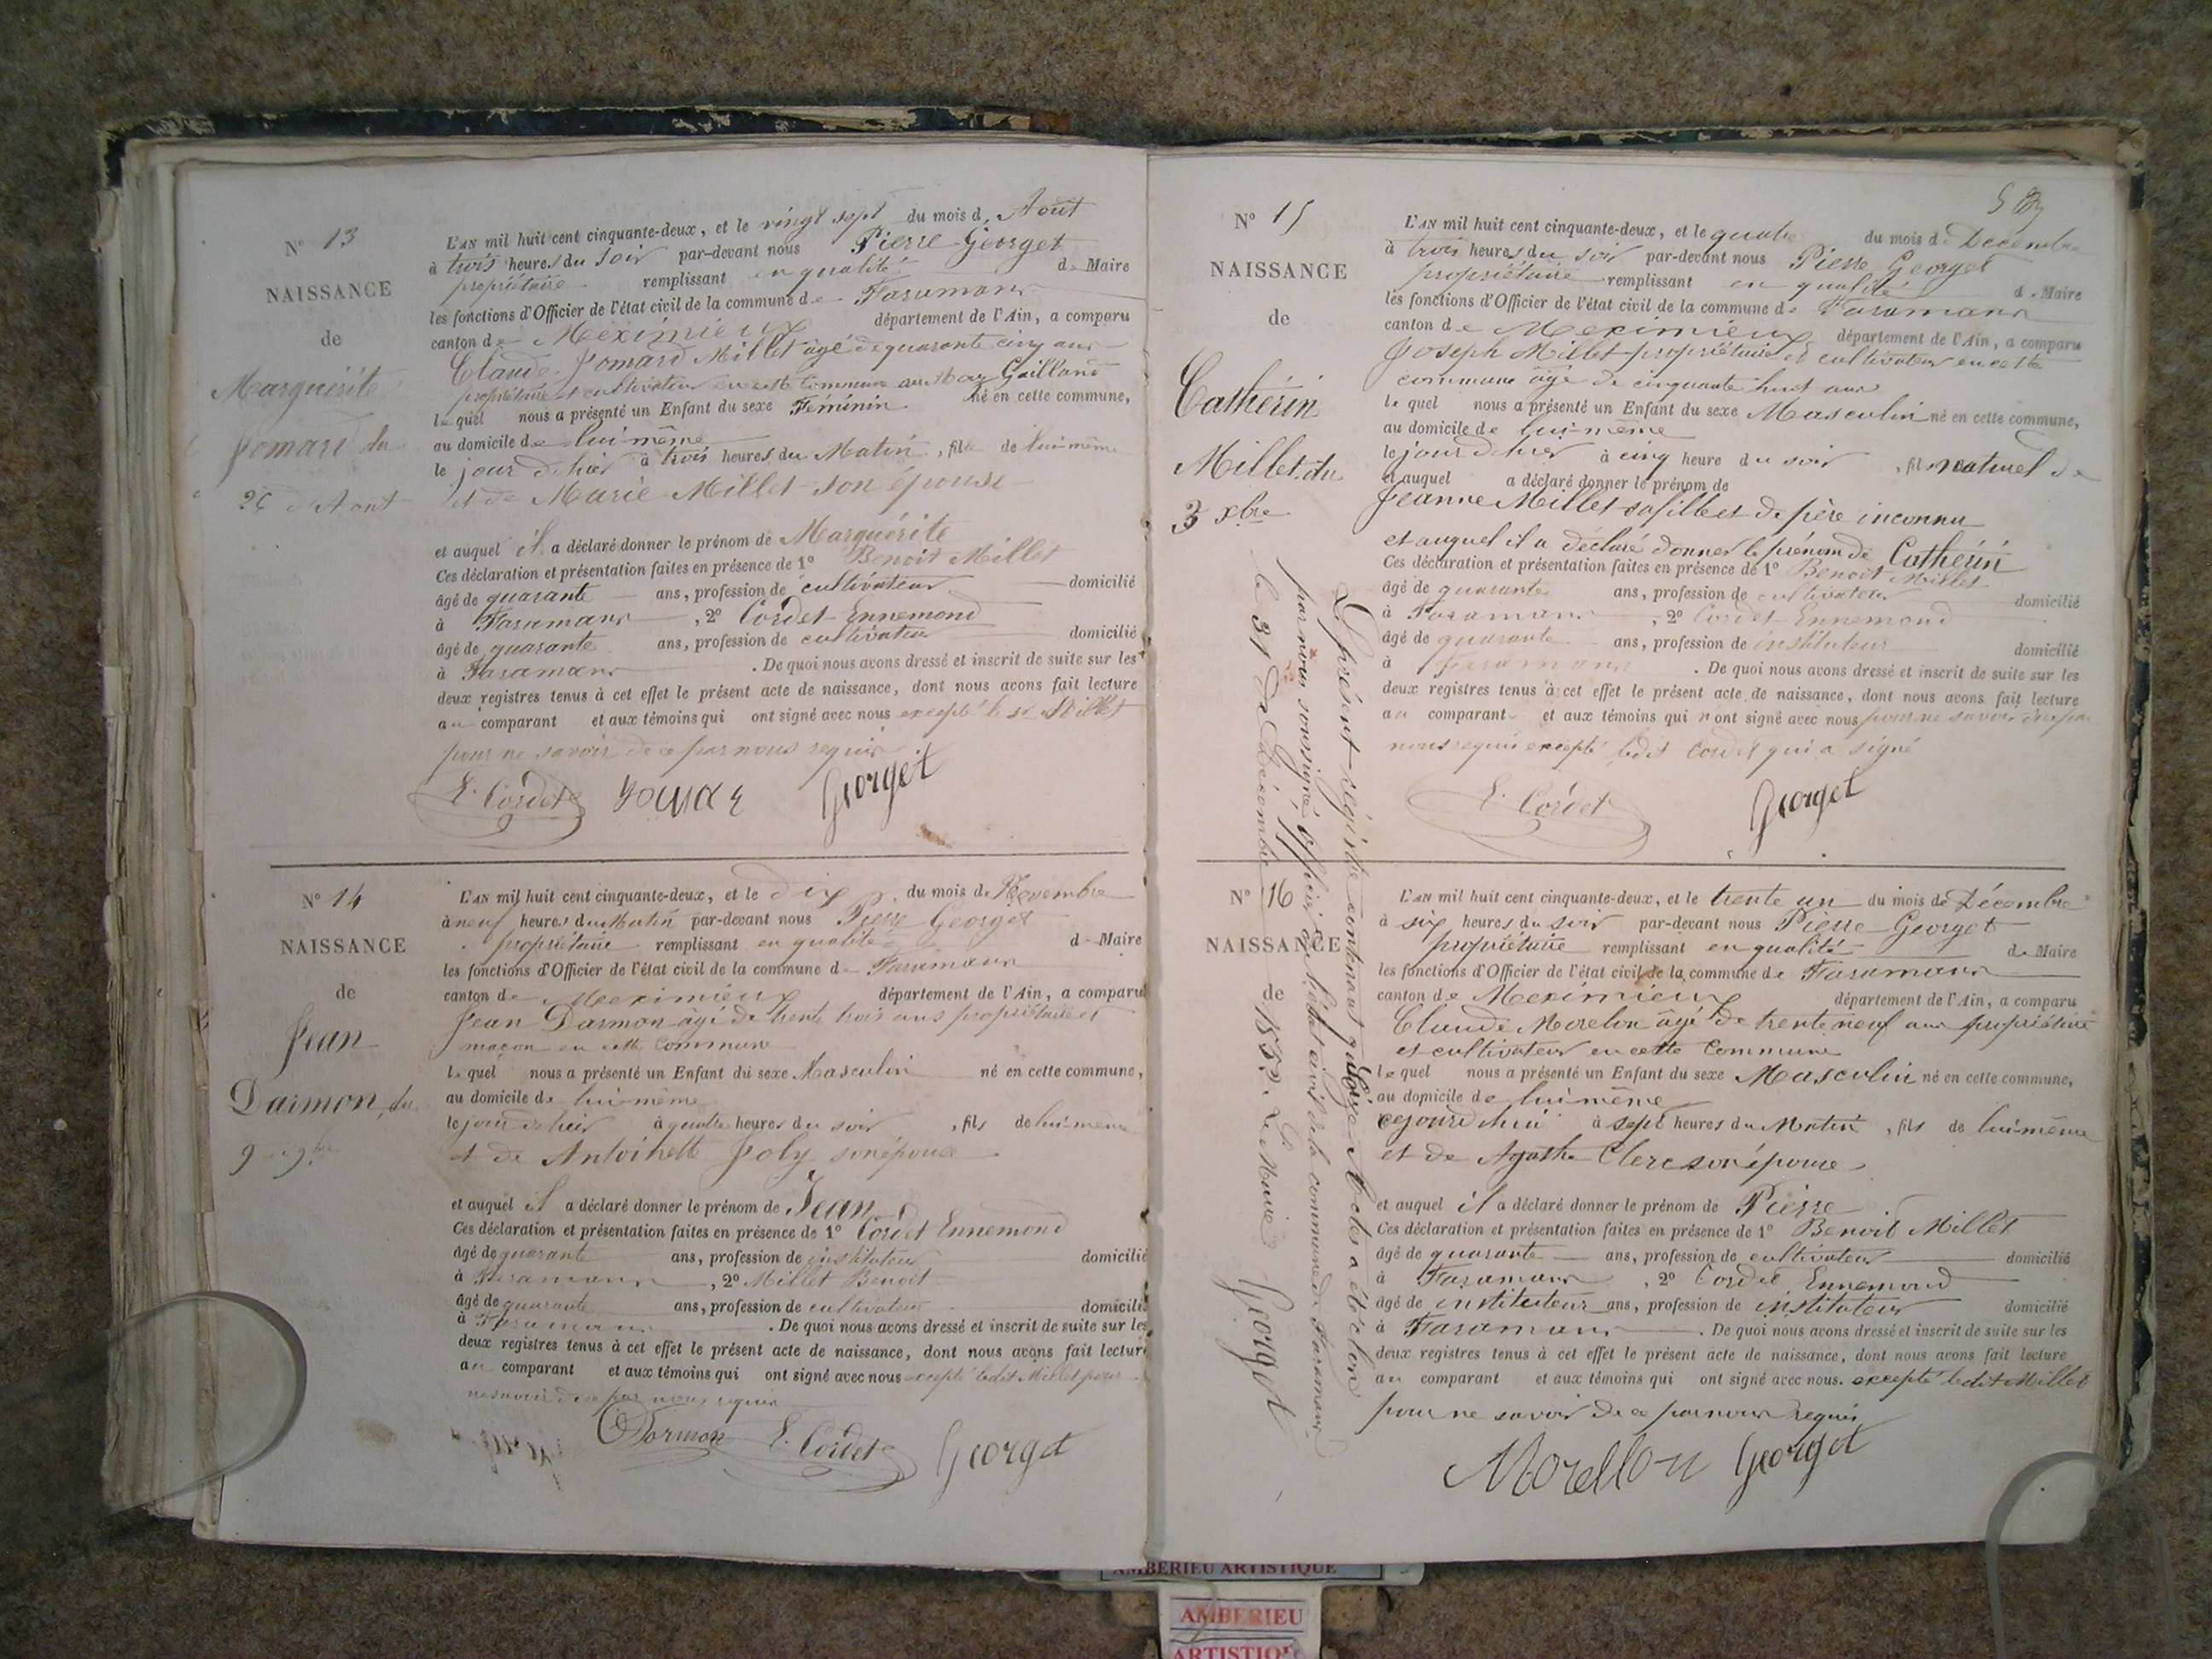 N° 13
NAISSANCE
de
Marguérite
Jomard du
26 d'Aout
L'AN mil huit cent cinquante-deux, et le vingt sept du mois d'Aout
à trois heures du soir par-devant nous Pierre Georget
propriétaire remplissant en qualité de Maire
les fonctions d'Officier de l'état civil de la commune de Faramans
canton de Meximieux département de l'Ain, a comparu
Claude Jomard Millet âgé de quarante cinq ans
propriétaire et cultivateur en cette commune au Gailland
lequel nous a présenté un Enfant du sexe Féminin né en cette commune,
au domicile de lui même
le jour d'hier à trois heures du Matin, fille de lui-même
et de Marie Millet son épouse
et auquel il a déclaré donner le prénom de Marguérite
Ces déclaration et présentation faites en présence de 1° Benoit Millet
âgé de quarante ans, profession de cultivateur domicilié
à Faramans, 2° Cordet Ennemond
âgé de quarante ans, profession de cultivateur domicilié
à Faramans. De quoi nous avons dressé et inscrit de suite sur les
deux registres tenus à cet effet le présent acte de naissance, dont nous avons fait lecture
au comparant et aux témoins qui ont signé avec nous excepté le sr Millet
pour ne savoir de ce par nous requis
E. Cordet Georget
N° 14
NAISSANCE
de
Jean
Darmon du
9 9bre
L'AN mil huit cent cinquante-deux, et le dix du mois de Novembre
à neuf heures du Matin par-devant nous Pierre Georget
propriétaire remplissant en qualité de Maire
les fonctions d'Officier de l'état civil de la commune de Faramans
canton de Meximieux département de l'Ain, a comparu
Jean Darmon âgé de trente trois ans propriétaire et
maçon en cette commune
lequel nous a présenté un Enfant du sexe Masculin né en cette commune,
au domicile de lui-même
le jour d'hier à quatre heures du soir, fils de lui-même
et de Antoinette Joly son épouse
et auquel il a déclaré donner le prénom de Jean
Ces déclaration et présentation faites en présence de 1° Cordet Ennemond
âgé de quarante ans, profession de instituteur domicilié
à Faramans, 2° Millet Benoit
âgé de quarante ans, profession de cultivateur domicilié
à Faramans. De quoi nous avons dressé et inscrit de suite sur les
deux registres tenus à cet effet le présent acte de naissance, dont nous avons fait lecture
au comparant et aux témoins qui ont signé avec nous excepté ledit Millet pour
ne savoir de ce par nous requis
Darmon E. Cordet Georget
N° 15
NAISSANCE
de
Cathérin
Millet du
3 xbre
L'AN mil huit cent cinquante-deux, et le quatre du mois de Décembre
à trois heures du soir par-devant nous Pierre Georget
propriétaire remplissant en qualité de Maire
les fonctions d'Officier de l'état civil de la commune de Faramans
canton de Meximieux département de l'Ain, a comparu
Joseph Millet propriétaire et cultivateur en cette
commune âgé de cinquante huit ans
lequel nous a présenté un Enfant du sexe Masculin né en cette commune,
au domicile de lui-même
le jour d'hier à cinq heure du soir, fils naturel de
et auquel a déclaré donner le prénom de
Jeanne Millet sa fille et de père inconnu
et auquel il a déclaré donner le prénom de Cathérin
Ces déclaration et présentation faites en présence de 1° Benoit Millet
âgé de quarante ans, profession de cultivateur domicilié
à Faramans, 2° Cordet Ennemond
âgé de quarante ans, profession de instituteur domicilié
à Faramans. De quoi nous avons dressé et inscrit de suite sur les
deux registres tenus à cet effet le présent acte de naissance, dont nous avons fait lecture
au comparant et aux témoins qui n'ont signé avec nous pour ne savoir de ce par
nous requis excepté ledit Cordet qui a signé
E. Cordet Georget
Le présent registre contenant quinze Actes a été clos
par nous soussigné Officier de l'état civil de la commune de Faramans
le 31 de Décembre 1852. Le Maire Georget
N° 16
NAISSANCE
de
L'AN mil huit cent cinquante-deux, et le trente un du mois de Décembre
à six heures du soir par-devant nous Pierre Georget
propriétaire remplissant en qualité de Maire
les fonctions d'Officier de l'état civil de la commune de Faramans
canton de Meximieux département de l'Ain, a comparu
Claude Morelon âgé de trente neuf ans propriétaire
et cultivateur en cette Commune
lequel nous a présenté un Enfant du sexe Masculin né en cette commune,
au domicile de lui-même
cejourd'hui à sept heures du Matin, fils de lui-même
et de Agathe Clerc son épouse
et auquel il a déclaré donner le prénom de Pierre
Ces déclaration et présentation faites en présence de 1° Benoit Millet
âgé de quarante ans, profession de cultivateur domicilié
à Faramans, 2° Cordet Ennemond
âgé de instituteur ans, profession de instituteur domicilié
à Faramans. De quoi nous avons dressé et inscrit de suite sur les
deux registres tenus à cet effet le présent acte de naissance, dont nous avons fait lecture
au comparant et aux témoins qui ont signé avec nous. excepté ledit Millet
pour ne savoir de ce par nous requis
Morellon Georget
AMBERIEU ARTISTIQUE
AMBERIEU
ARTISTIQUE